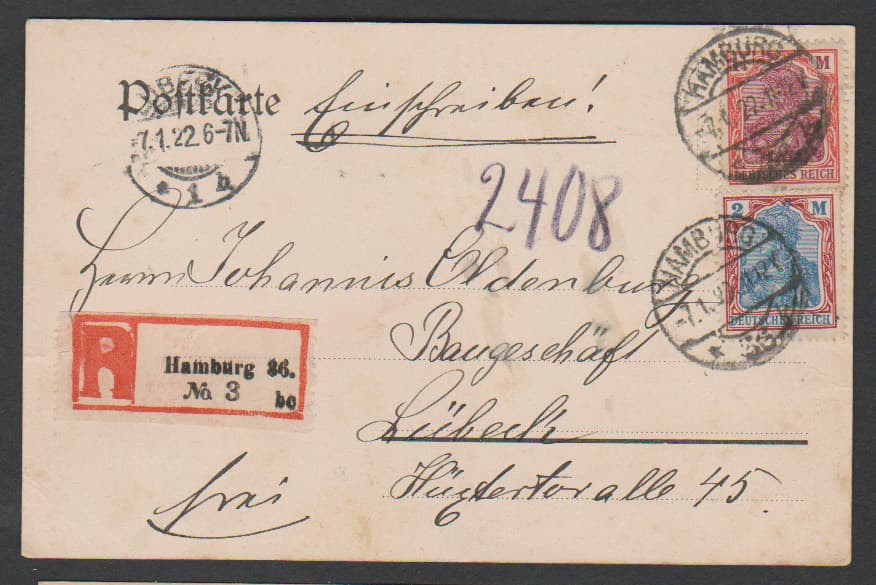 Postkarte
Einschreiben!
LÜBECK
7.1.22 6-7N.
* 1 h
HAMBURG
M
DEUTSCHES REICH
2408
2 M
HAMBURG
DEUTSCHES REICH
Herrn Johannis Oldenburg
Baugeschäft
R
Hamburg 36.
No. 3 bc
Lübeck
Hüxtertorallee 45
frei